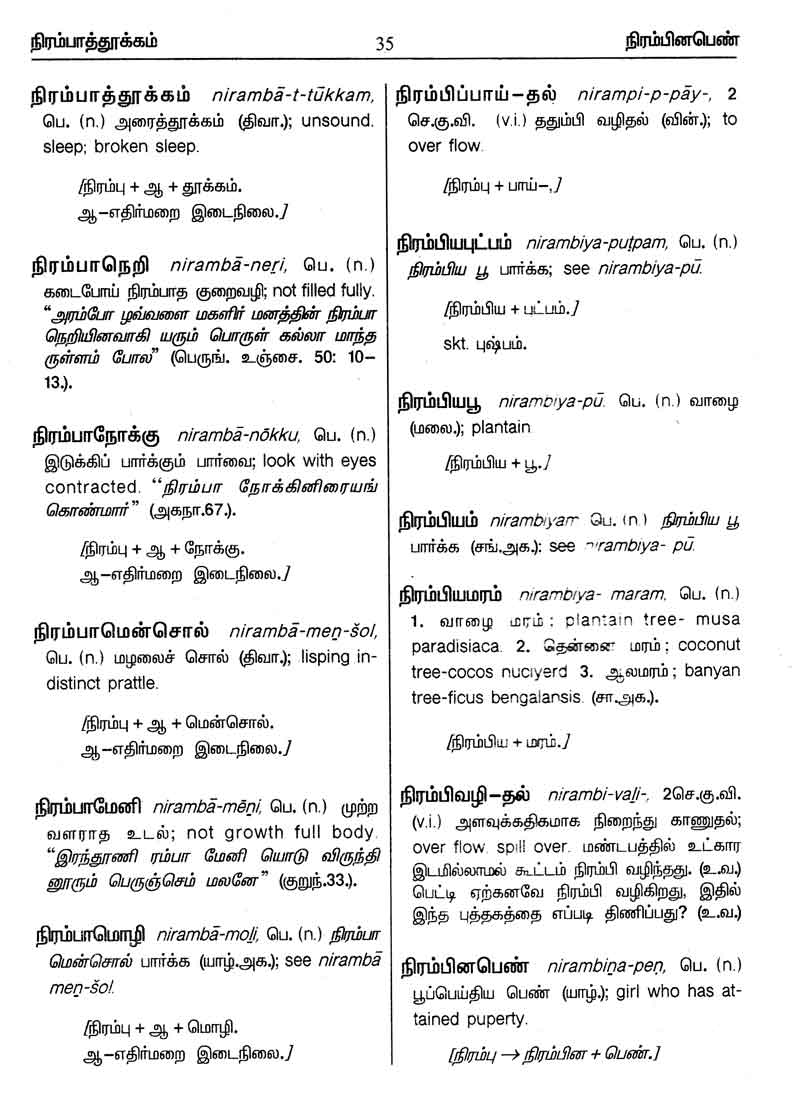 நிரம்பாத்தூக்கம்
35
நிரம்பினபெண்
நிரம்பாத்தூக்கம் nirambā-t-tūkkam,
பெ. (n.) அரைத்தூக்கம் (திவா.); unsound.
sleep; broken sleep.
[நிரம்பு + ஆ + தூக்கம்.
ஆ–எதிர்மறை இடைநிலை.]
நிரம்பாநெறி nirambā-neṟi, பெ. (n.)
கடைபோய் நிரம்பாத குறைவழி; not filled fully.
“அரம்போ ழவ்வளை மகளிர் மனத்தின் நிரம்பா
நெறியினவாகி யரும் பொருள் கல்லா மாந்த
ருள்ளம் போல” (பெருங். உஞ்சை. 50: 10–
13.).
நிரம்பாநோக்கு nirambā-nōkku, பெ. (n.)
இடுக்கிப் பார்க்கும் பார்வை; look with eyes
contracted. “நிரம்பா நோக்கினிரையங்
கொண்மார்” (அகநா.67.).
[நிரம்பு + ஆ + நோக்கு.
ஆ–எதிர்மறை இடைநிலை.]
நிரம்பாமென்சொல் nirambā-meṉ-šol,
பெ. (n.) மழலைச் சொல் (திவா.); lisping in-
distinct prattle.
[நிரம்பு + ஆ + மென்சொல்.
ஆ–எதிர்மறை இடைநிலை.]
நிரம்பாமேனி nirambā-mēṉi, பெ. (n.) முற்ற
வளராத உடல்; not growth full body.
“இரந்தூணி ரம்பா மேனி யொடு விருந்தி
னூரும் பெருஞ்செம் மலனே” (குறுந்.33.).
நிரம்பாமொழி nirambā-moḻi, பெ. (n.) நிரம்பா
மென்சொல் பார்க்க (யாழ்.அக.); see nirambā
meṉ-šol.
[நிரம்பு + ஆ + மொழி.
ஆ–எதிர்மறை இடைநிலை.]
நிரம்பிப்பாய்–தல் nirampi-p-pāy-, 2
செ.கு.வி. (v.i.) ததும்பி வழிதல் (வின்.); to
over flow.
[நிரம்பு + பாய்–,]
நிரம்பியபுட்பம் nirambiya-puṭpam, பெ. (n.)
நிரம்பிய பூ பார்க்க; see nirambiya-pū.
[நிரம்பிய + புட்பம்.]
skt. புஷ்பம்.
நிரம்பியபூ nirambiya-pū. பெ. (n.) வாழை
(மலை.); plantain
[நிரம்பிய + பூ.]
நிரம்பியம் nirambiyam பெ. (n.) நிரம்பிய பூ
பார்க்க (சங்.அக.): see nirambiya- pū.
நிரம்பியமரம் nirambiya- maram, பெ. (n.)
1. வாழை மரம் ; plantain tree- musa
paradisiaca. 2. தென்னை மரம் ; coconut
tree-cocos nuciyerd 3. ஆலமரம் ; banyan
tree-ficus bengalansis. (சா.அக.).
[நிரம்பிய + மரம்.]
நிரம்பிவழி–தல் nirambi-vaḻi-, 2செ.கு.வி.
(v.i.) அளவுக்கதிகமாக நிறைந்து காணுதல்;
over flow. spill over. மண்டபத்தில் உட்கார
இடமில்லாமல் கூட்டம் நிரம்பி வழிந்தது. (உ.வ.)
பெட்டி ஏற்கனவே நிரம்பி வழிகிறது, இதில்
இந்த புத்தகத்தை எப்படி திணிப்பது? (உ.வ.)
நிரம்பினபெண் nirambiṉa-peṇ, பெ. (n.)
பூப்பெய்திய பெண் (யாழ்.); girl who has at-
tained puperty.
[நிரம்பு → நிரம்பின + பெண்.]